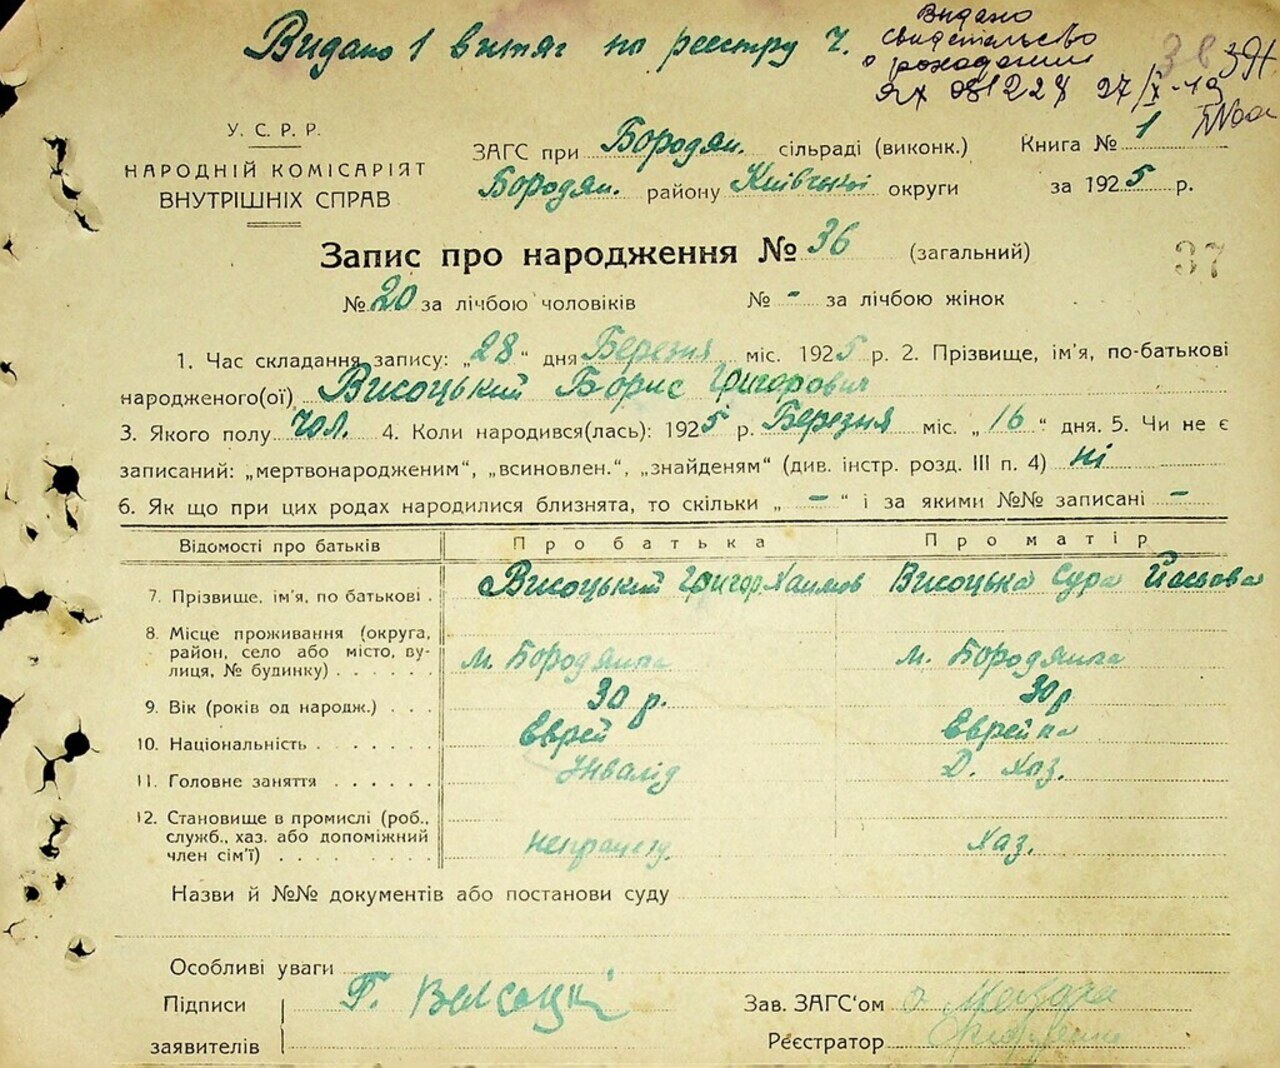 Видано 1 витяг по реестру Ч.
Видано
свидетельство
о рождении
ЯХ 081227 27/X-
38 39
У. С. Р. Р.
НАРОДНІЙ КОМІСАРІЯТ
ВНУТРІШНІХ СПРАВ
ЗАГС при Бородян. сільраді (виконк.) Книга № 1
Бородян. району Київської округи за 1925 р.
Запис про народження № 36 (загальний)
37
№ 20 за лічбою чоловіків № - за лічбою жінок
1. Час складання запису: „28“ дня Березня міс. 1925 р. 2. Прізвище, ім'я, по-батькові
народженого(ої) Височький Борис Григорович
3. Якого полу чол. 4. Коли народився(лась): 1925 р. Березня міс. „16“ дня. 5. Чи не є
записаний: „мертвонародженим“, „всиновлен.“, „знайденям“ (див. інстр. розд. III п. 4) ні
6. Як що при цих родах народилися близнята, то скільки „-“ і за якими №№ записані -
Відомості про батьків Про батька Про матір
7. Прізвище, ім'я, по батькові . Височький Григор. Хаимов Височька Сура
8. Місце проживання (округа,
район, село або місто, ву-
лиця, № будинку) . . . . . . м. Бородянка м. Бородянка
9. Вік (років од народж.) . . . 30 р. 30 р
10. Національність . . . . . . Єврей Єврейка
11. Головне заняття . . . . . Інвалід Д. Хаз.
12. Становище в промислі (роб.,
служб., хаз. або допоміжний
член сім'ї) . . . . . . . . непрацезд. Хаз.
Назви й №№ документів або постанови суду
Особливі уваги
Підписи
заявителів
Г. Височкі
Зав. ЗАГС'ом
Реєстратор